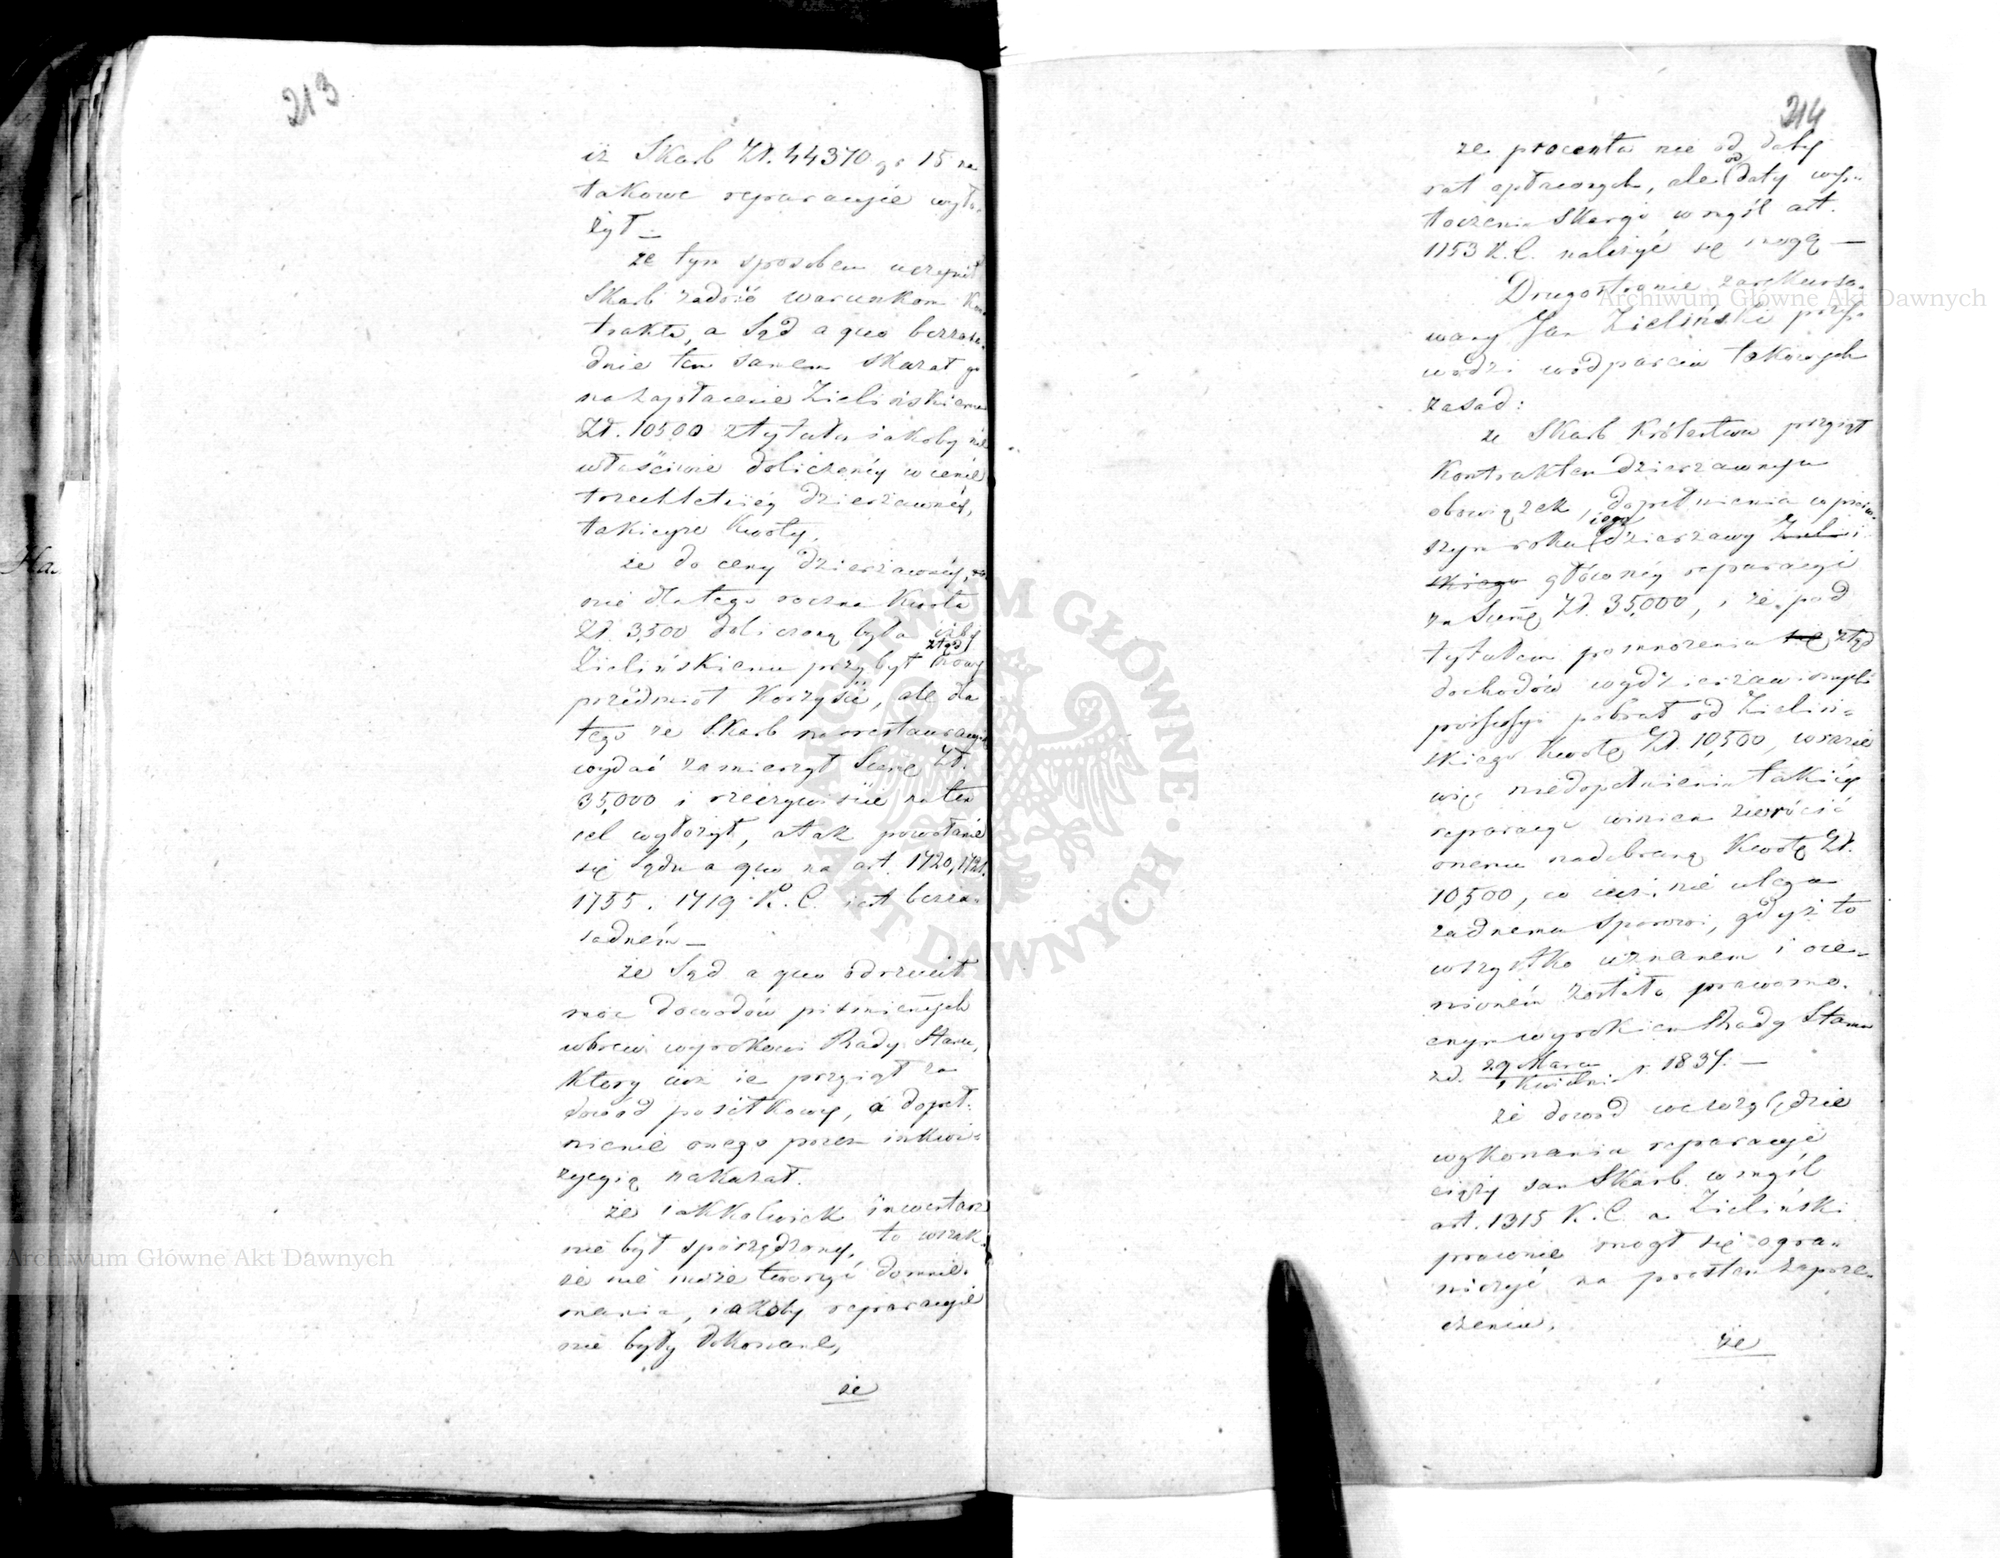 213
iż Skarb Zł. 44370 gr 15 na
takowe reparacyie wyło-
żył —
że tym sposobem uczynił
Skarb zadość warunkom Kon-
traktu, a Sąd a quo bezzasa-
dnie tem samem skazał go
na zapłacenie Zielińskiemu
Zł. 10500 z tytułu iakoby nie
właściwie doliczonéy w cenie
trzechletniéy dzierżawnéy,
takieyże kwoty,
że do ceny dzierżawnéy,
nie dlatego roczna kwota
Zł. 3,500 doliczoną była iżby
Zielińskiemu przybył ztąd nowy
przedmiot korzyści, ale dla
tego że Skarb na restauracyie
wydać zamierzył Summę Zł.
35,000 i rzeczywiście na ten
cel wyłożył, a tak powołanie
się Sądu a quo na art. 1720, 1721.
1755. 1719 K. C. iest bezza-
sadném —
że Sąd a quo odrzucił
moc dowodów piśmiennych
wbrew wyrokowi Rady Stanu,
który iuż ie przyiął za
dowód posiłkowy, a dopeł-
nienie onego przez inkwi-
zycyią nakazał.
że iakkolwiek inwentarz
nie był sporządzony, to wszak-
że nie może tworzyć domnie-
mania, iakoby reparacyie
nie były dokonane,
że
214
że procenta nie od daty
rat opłaconych, ale od daty wy-
toczenia Skargi w myśl art.
1153 K. C. należyć się mogą —
Drugostronnie zarekurso-
wany Jan Zieliński przy-
wodzi w odparciu takowych
zasad:
że Skarb Królestwa przyiął
Kontraktem dzierżawnym
obowiązek, dopełnienia w pierw-
szym roku iego dzierżawy Zieliń-
skiego głównéy reparacyi
za Summę Zł. 35,000, i że pod
tytułem pomnożenia się ztąd
dochodów wydzierżawionych
possessyi pobrał od Zieliń-
skiego kwotę Zł. 10,500, w razie
więc niedopełnienia takiéy
reparacyi winien zwrócić
onemu nadebraną kwotę Zł.
10,500, co iuż nie ulega
żadnemu sporowi, gdyż to
wszystko uznanem i oce-
nioném zostało prawomo-
cnym wyrokiem Rady Stanu
z d. 29 Marca / 1 Kwietnia r. 1837. —
że dowód we względzie
wykonania reparacyi
ciąży sam Skarb w myśl
art. 1315 K. C. a Zieliński
prawnie mógł się ogra-
niczyć na prostem zaprze-
czeniu,
że
Archiwum Główne Akt Dawnych
Archiwum Główne Akt Dawnych
ARCHIWUM GŁÓWNE AKT DAWNYCH